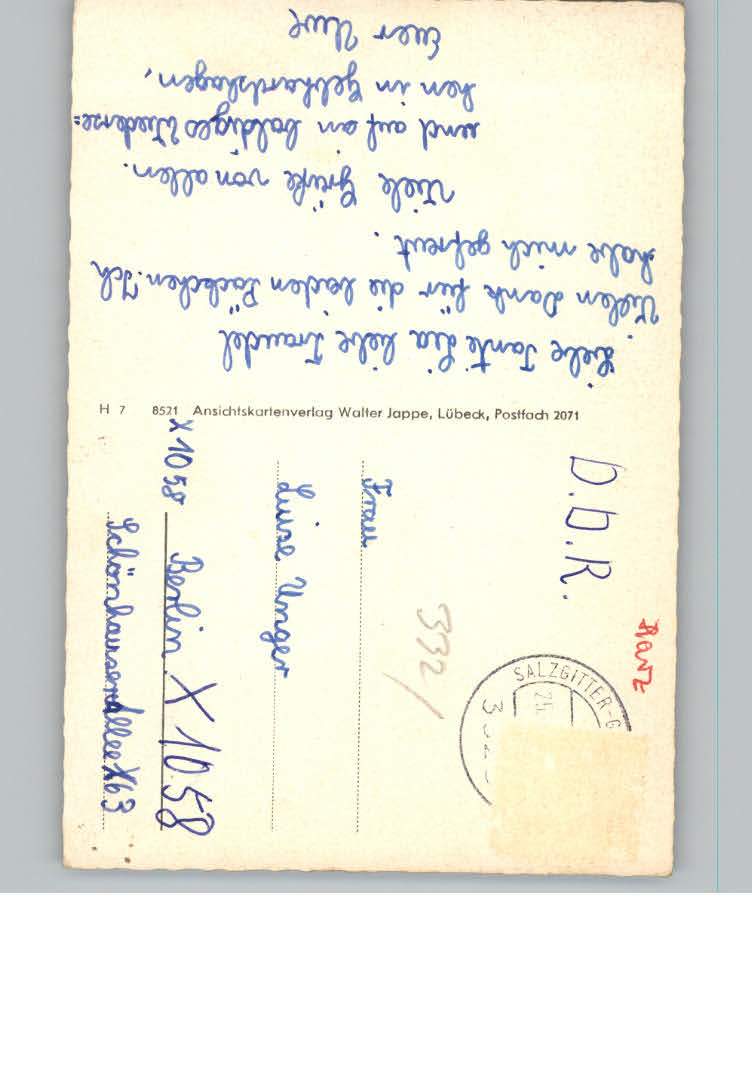 Liebe Tante Lia liebe Traudel
Vielen Dank für die beiden Päckchen. Ich
habe mich gefreut.
Viele Grüße von allen.
und auf ein baldiges Wiederse=
hen in Gebhardshagen,
Euer Uwe
H 7 8521 Ansichtskartenverlag Walter Jappe, Lübeck, Postfach 2071
D.D.R.
Harz
SALZGITTER-G
25.
3321
Frau
Luise Unger
X 1058 Berlin X 1058
Schönhauserallee 163